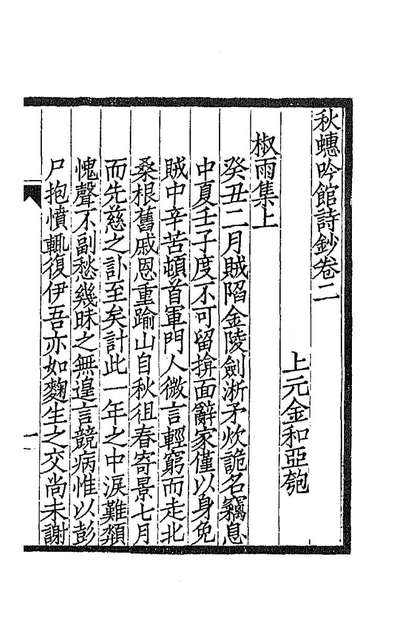 秋蟪吟館詩鈔卷二
上元金和亞匏
椒雨集上
癸丑二月賊陷金陵劍淅矛炊詭名竊息
中夏壬子度不可留揜面辭家僅以身免
賊中辛苦頓首軍門人微言輕窮而走北
桑根舊戚恩重踰山自秋徂春寄景七月
而先慈之訃至矣計此一年之中淚難類
愧聲不副愁幾昧之無遑言競病惟以彭
尸抱憤輒復伊吾亦如麴生之交尚未謝
一